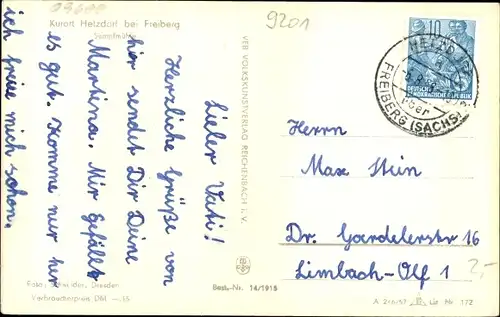 09688
9201
Kurort Hetzdorf bei Freiberg
Sumpfmühle
Lieber Vati!
Herzliche Grüße von
hier sendet Dir Deine
Martina. Mir gefällt
es gut. Komme nur her
ich freie mich schon.
Foto: Schneider, Dresden
Verbraucherpreis DM -.15
VEB VOLKSKUNSTVERLAG REICHENBACH i. V.
Best.-Nr. 14/1915
10
DEUTSCHE
DEMOKRATISCHE REPUBLIK
über
FREIBERG (SACHS)
Herrn
Max Stein
Dr. Gardelerstr 16
Limbach-Olf 1
2,-
A 276/57
Liz Nr. 172